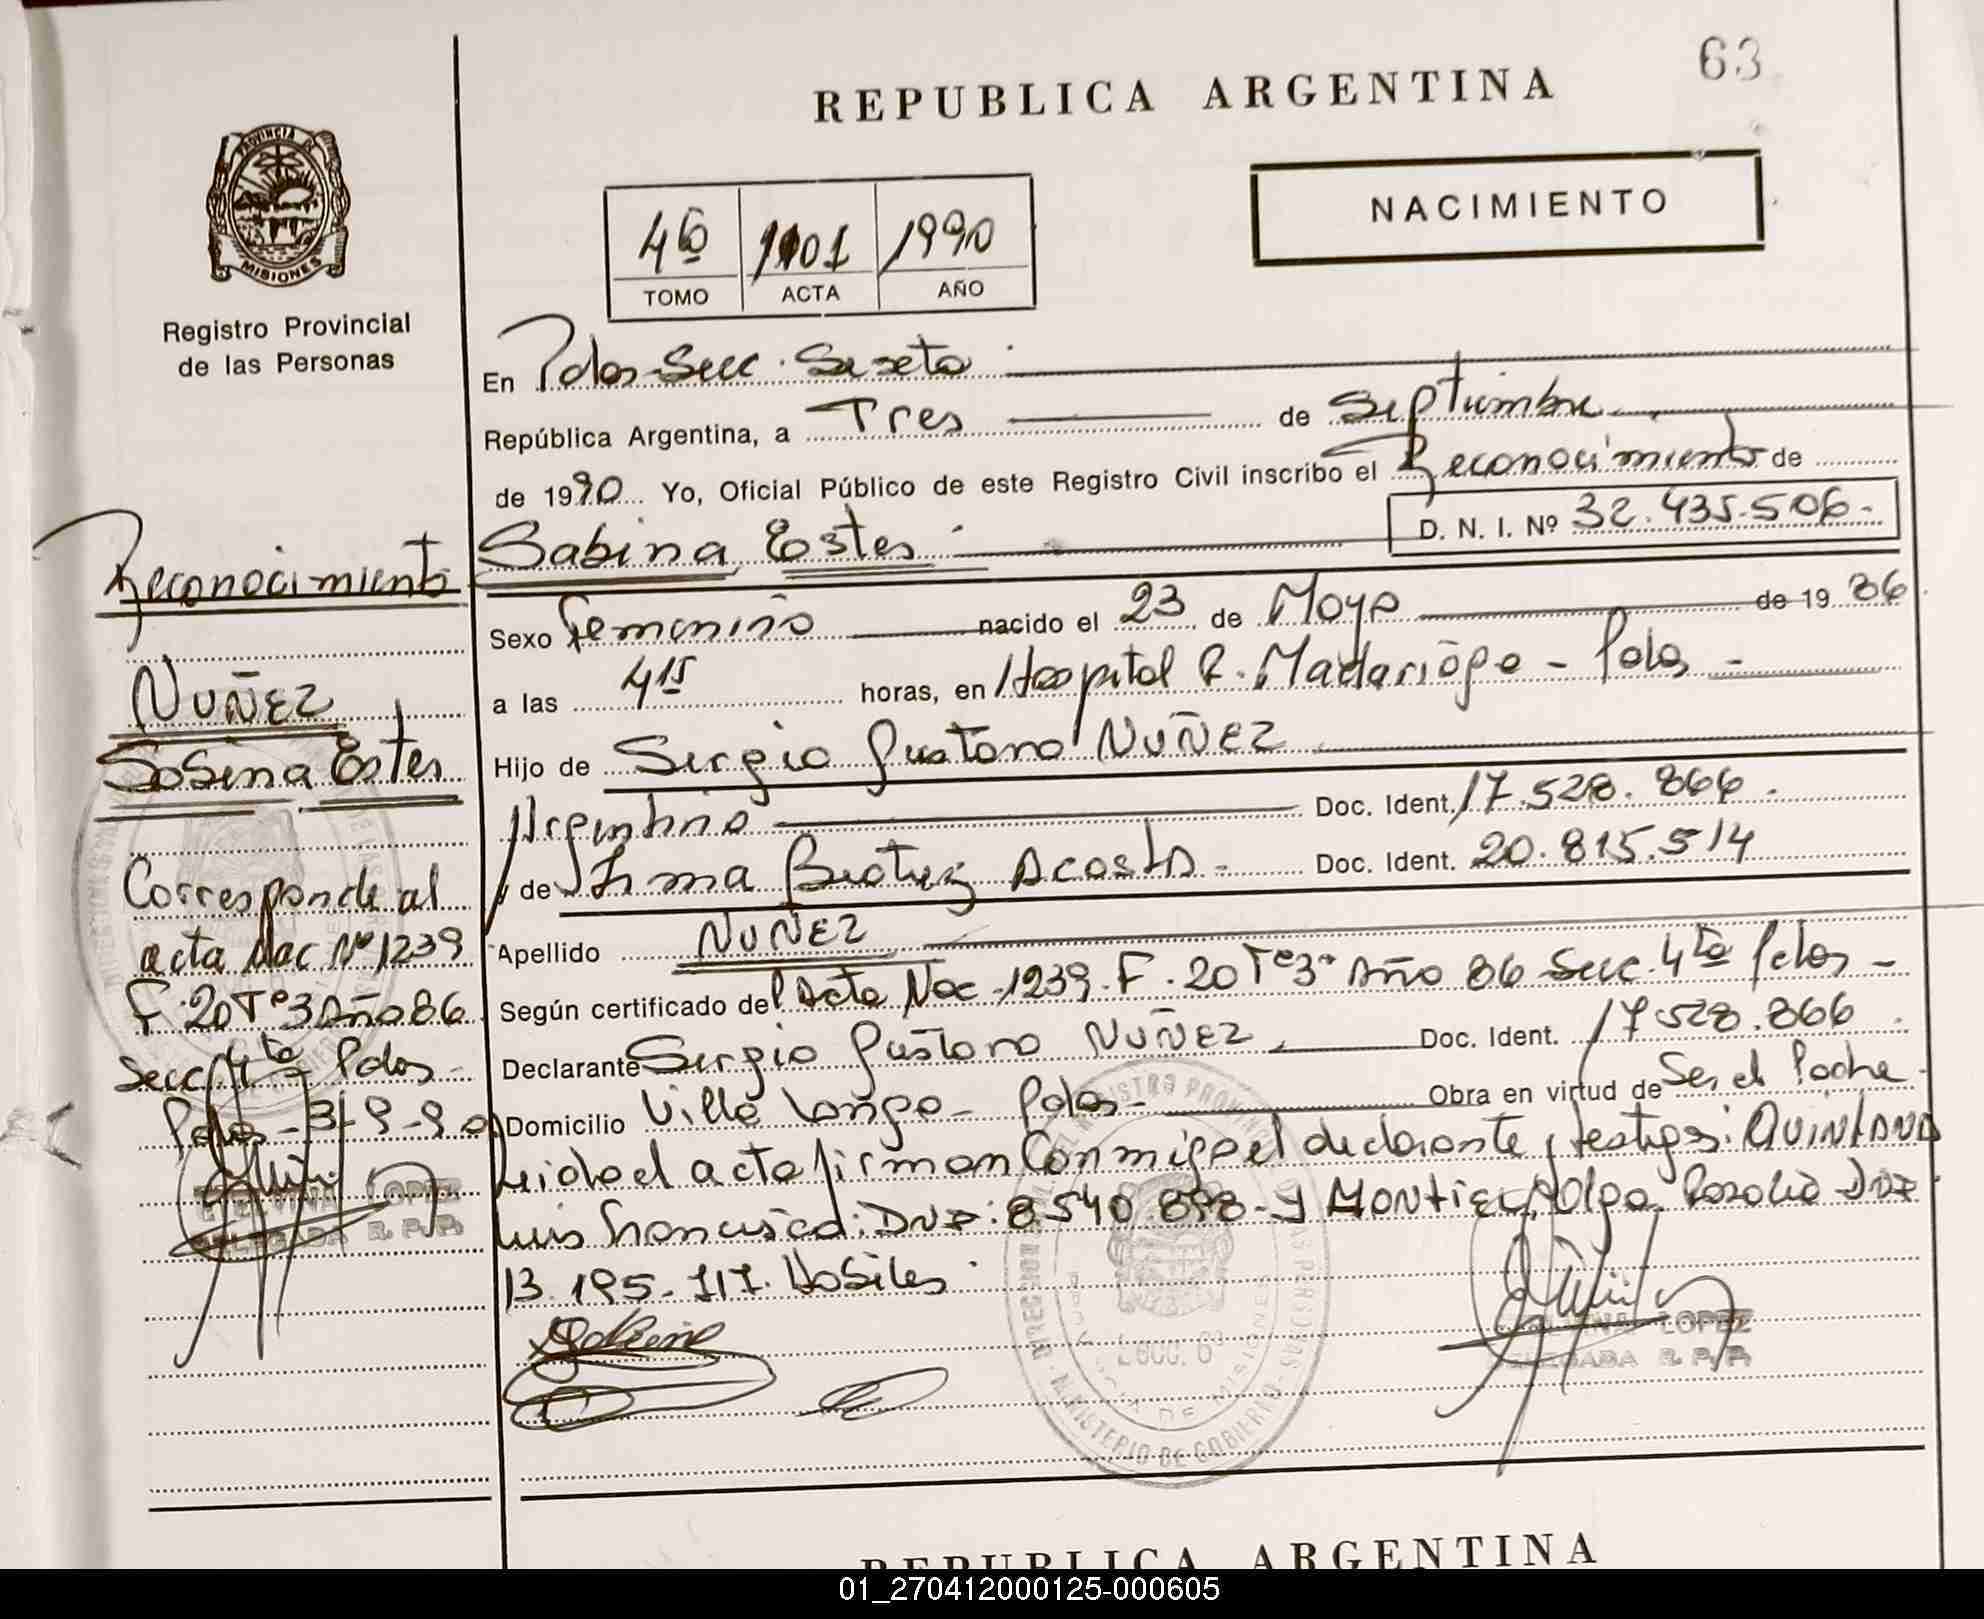 63
REPUBLICA ARGENTINA
NACIMIENTO
PROVINCIA DE
MISIONES
Registro Provincial
de las Personas
4º 1101 1990
TOMO ACTA AÑO
En Pdas Secc. Sexta
República Argentina, a Tres de Septiembre
de 1990 Yo, Oficial Público de este Registro Civil inscribo el Reconocimiento de
D. N. I. Nº 32.435.506.-
Sabina Ester
Sexo femenino nacido el 23 de Mayo de 19 86
a las 4¹⁵ horas, en Hospital R. Madariaga - Pdas -
Hijo de Sergio Gustavo NUÑEZ
Argentino Doc. Ident. 17.528.866.
y de Irma Beatriz Acosta - Doc. Ident. 20.815.514
Apellido NUÑEZ
Según certificado del Acta Nac. 1239. F. 20 Tº 3º Año 86 Secc. 4ta Pdas -
Declarante Sergio Gustavo NUÑEZ Doc. Ident. 17.528.866
Domicilio Villa Longa - Pdas - Obra en virtud de Ser el Padre
Leida el acta firman Conmigo el declarante y testigos: QUINTANA
Luis Francisco: DNI: 8540.898 - y MONTIEL, Olga Rosalia DNI
13.195.717. Habiles
Reconocimiento
NUÑEZ
Sabina Ester
Corresponde al
acta Nac Nº 1239
F. 20 Tº 3 Año 86
Secc 4ta Pdas -
Pdas - 3-9-90
LOPEZ
DELEGADA R. P. P.
LOPEZ
DELEGADA R. P. P.
MINISTERIO DE GOBIERNO
REPUBLICA ARGENTINA
01_270412000125-000605